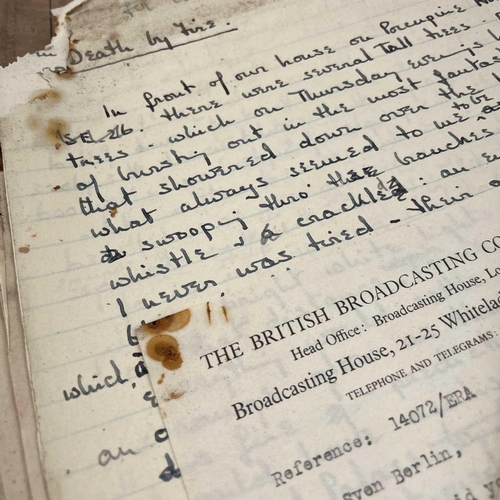 Death by Fire.
In front of our house on Porcupine
there were several Tall trees
trees - which on Thursday evenings
of bursting out in the most
that showered down over the
what always seemed to me to be
swooping thro' the branches
whistle & a crackle : an
I never was tired - Their
which,
an
THE BRITISH BROADCASTING CO
Head Office: Broadcasting House, Lo
Broadcasting House, 21-25 Whitela
TELEPHONE AND TELEGRAMS:
Reference: 14072/ERA
ven Berlin,